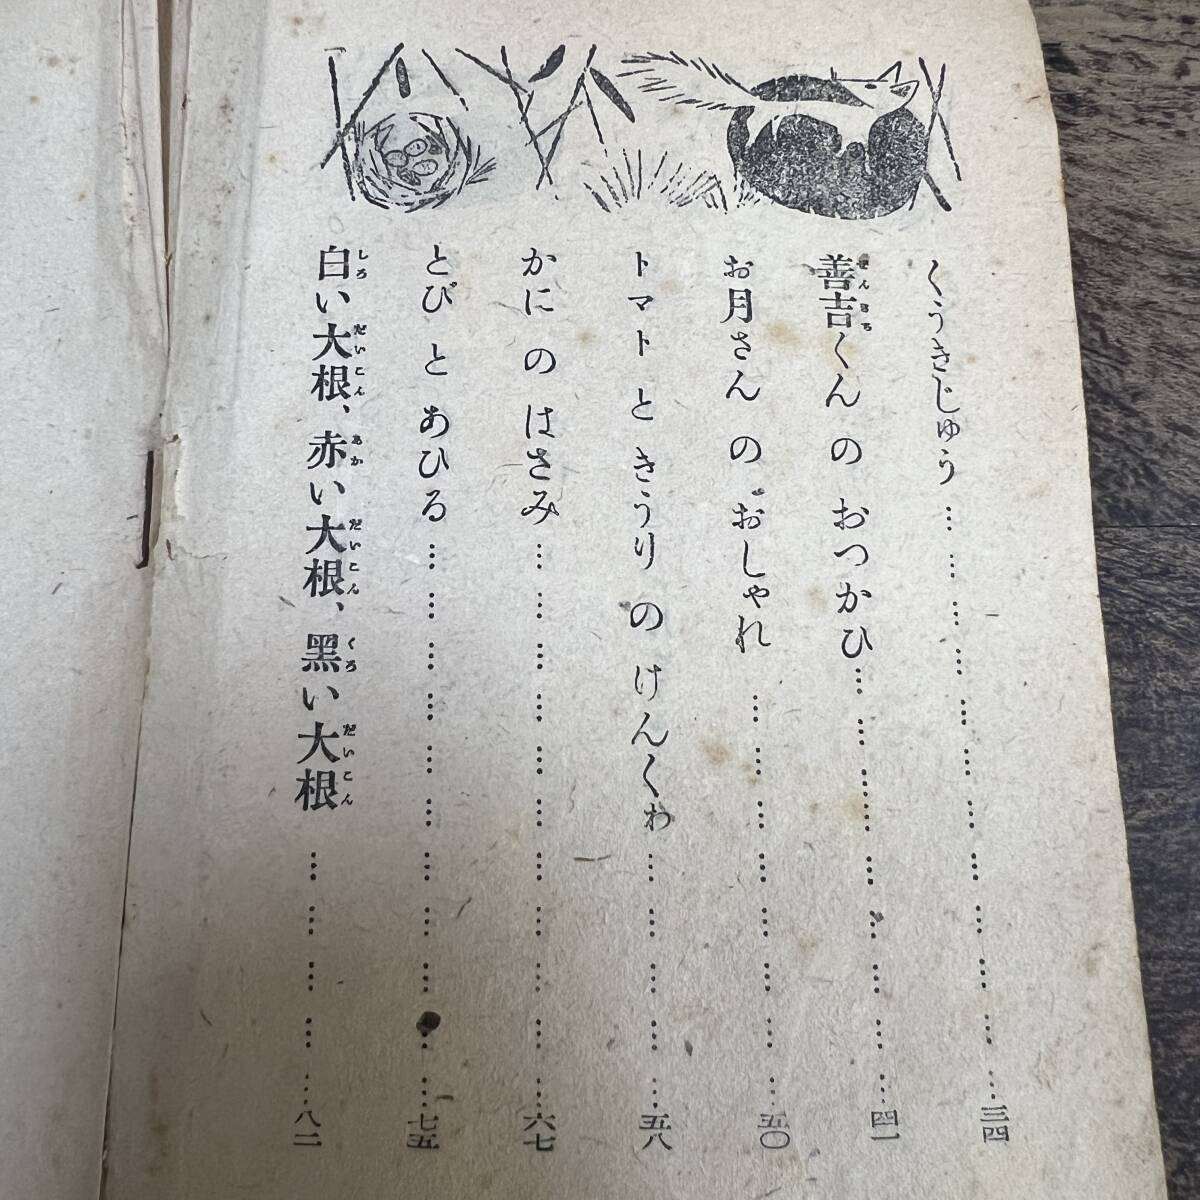 くうきじゅう………………………………三四
善吉くん の おつかひ………………………四一
お月さん の おしゃれ………………………五〇
トマト と きうり の けんくわ………………五八
かに の はさみ………………………………六七
とび と あひる………………………………七五
白い大根、赤い大根、黑い大根………………八二